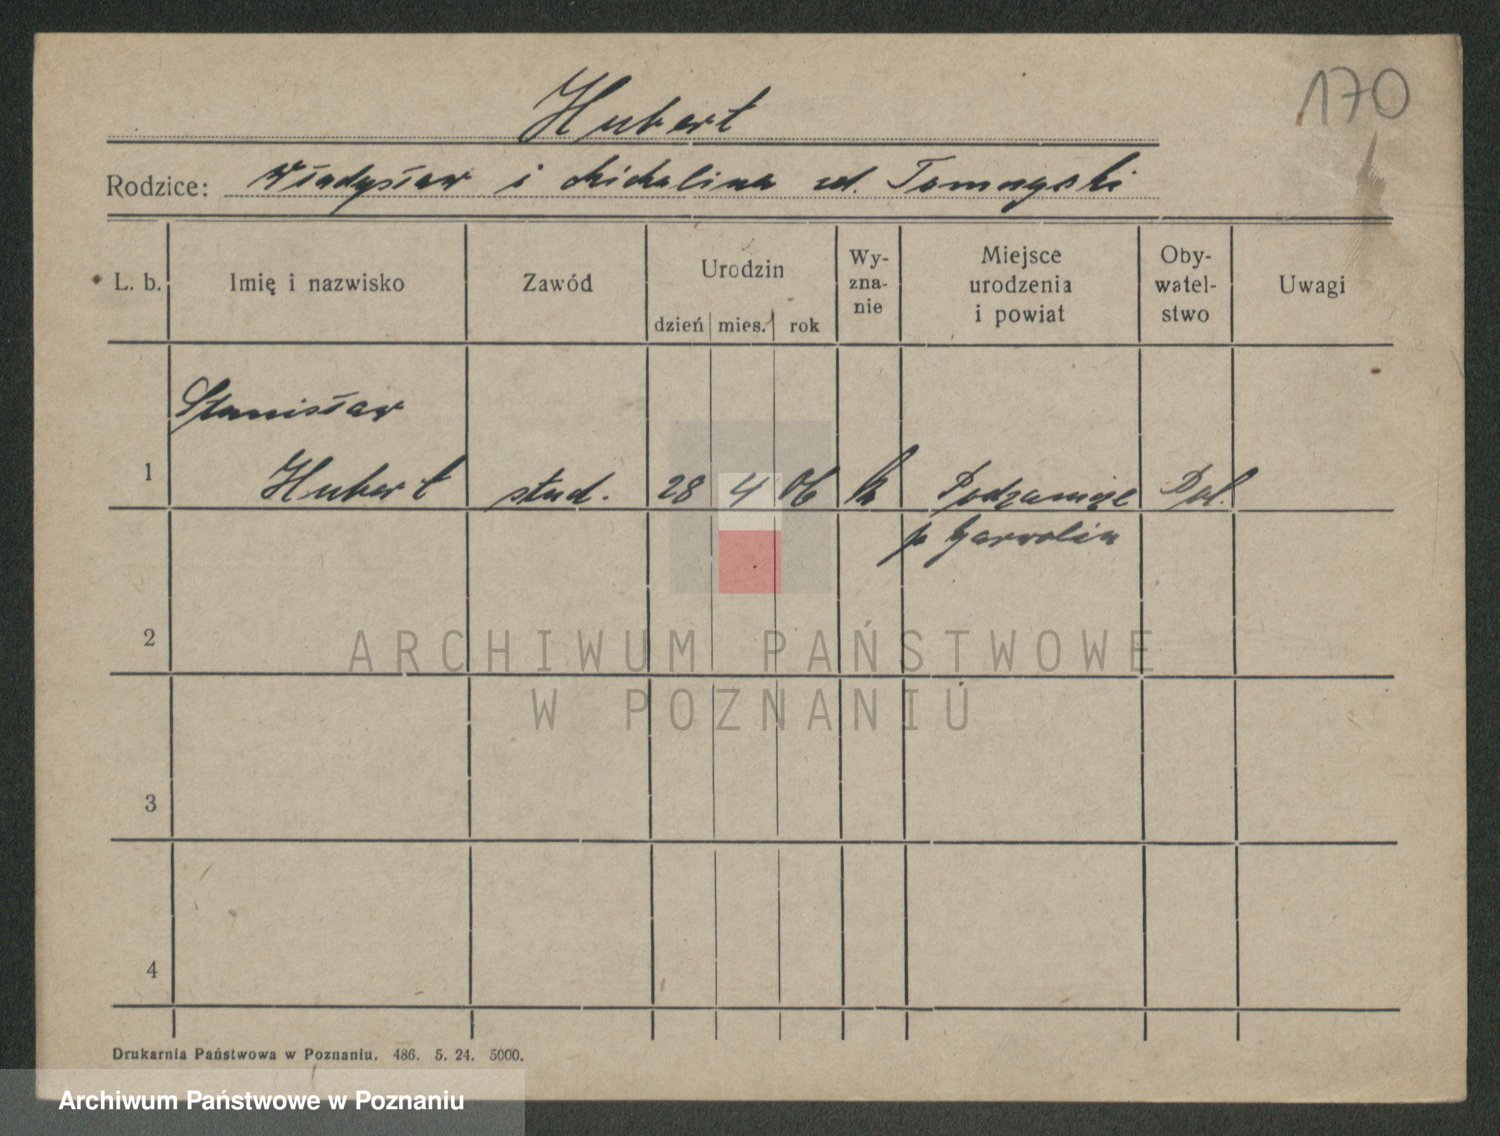 170
Hubert
Rodzice: Władysław i Michalina zd.
L. b. Imię i nazwisko Zawód Urodzin dzień mies. rok Wy-zna-nie Miejsce urodzenia i powiat Oby-watel-stwo Uwagi
Stanisław
1 Hubert stud. 28 4 06 k Podzamcze Pol.
p Garwolin
2
ARCHIWUM PAŃSTWOWE
W POZNANIU
3
4
Drukarnia Państwowa w Poznaniu. 486. 5. 24. 5000.
Archiwum Państwowe w Poznaniu